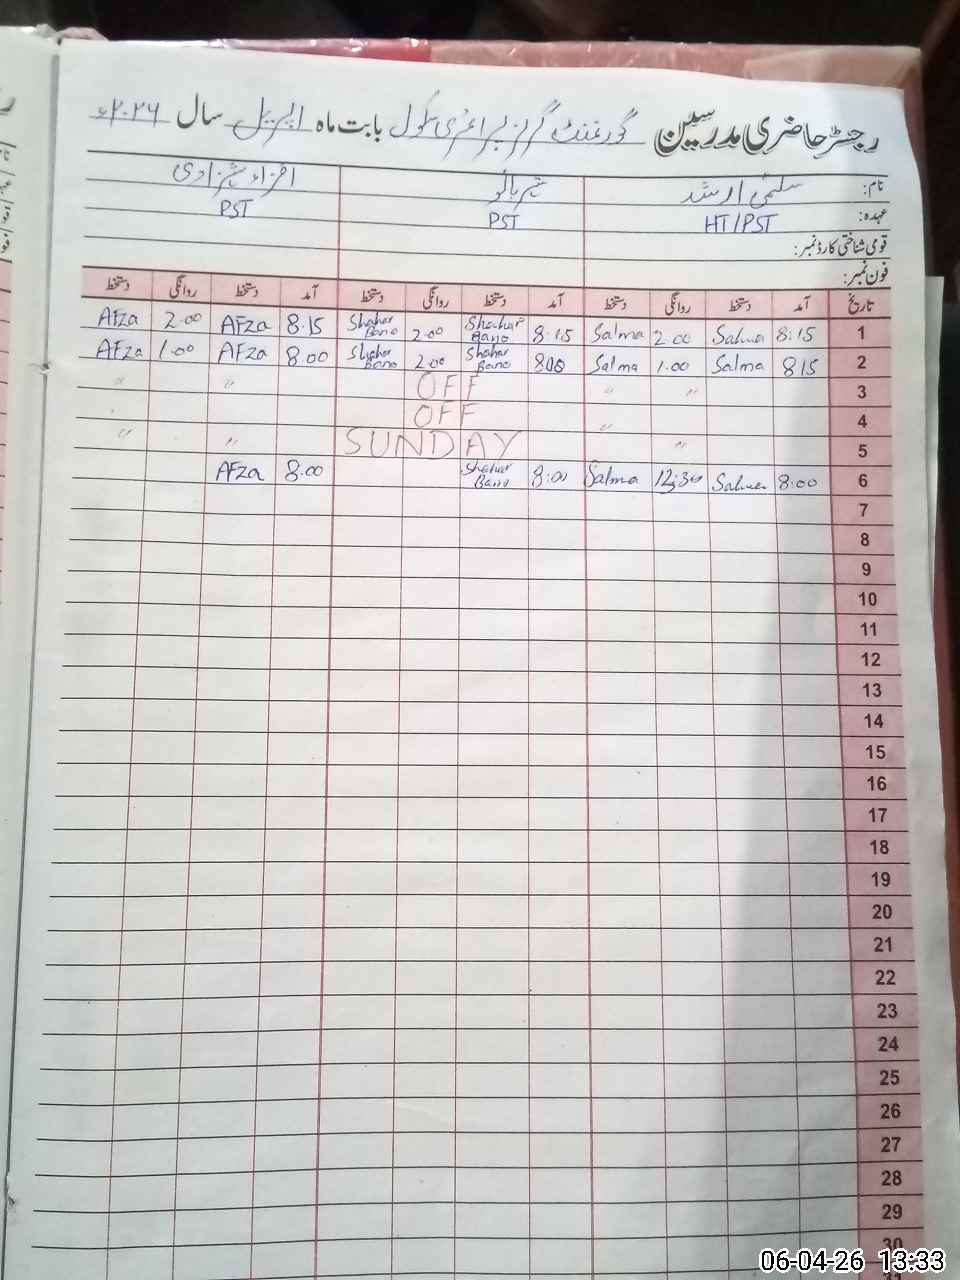 رجسٹر حاضری مدرسین گورنمنٹ گرلز پرائمری سکول بابت ماہ اپریل سال ۲۰۲۶ء
نام: سلمیٰ ارشد شہر بانو افزاء شہزادی
عہدہ: HT/PST PST PST
قومی شناختی کارڈ نمبر:
فون نمبر:
تاریخ آمد دستخط روانگی دستخط آمد دستخط روانگی دستخط آمد دستخط روانگی دستخط
1 8:15 Salma 2.00 Salma 8:15 Shahar Bano 2.00 Shahar Bano 8.15 AFza 2.00 AFza
2 815 Salma 1.00 Salma 8:00 Shahar Bano 2.00 Shahar Bano 8.00 AFza 1.00 AFza
3 〃 〃 OFF 〃 〃
4 〃 OFF
5 〃 SUNDAY 〃 〃
6 8:00 Salma 12:30 Salma 8:00 Shahar Bano 8.00 AFza
7
8
9
10
11
12
13
14
15
16
17
18
19
20
21
22
23
24
25
26
27
28
29
30
06-04-26 13:33